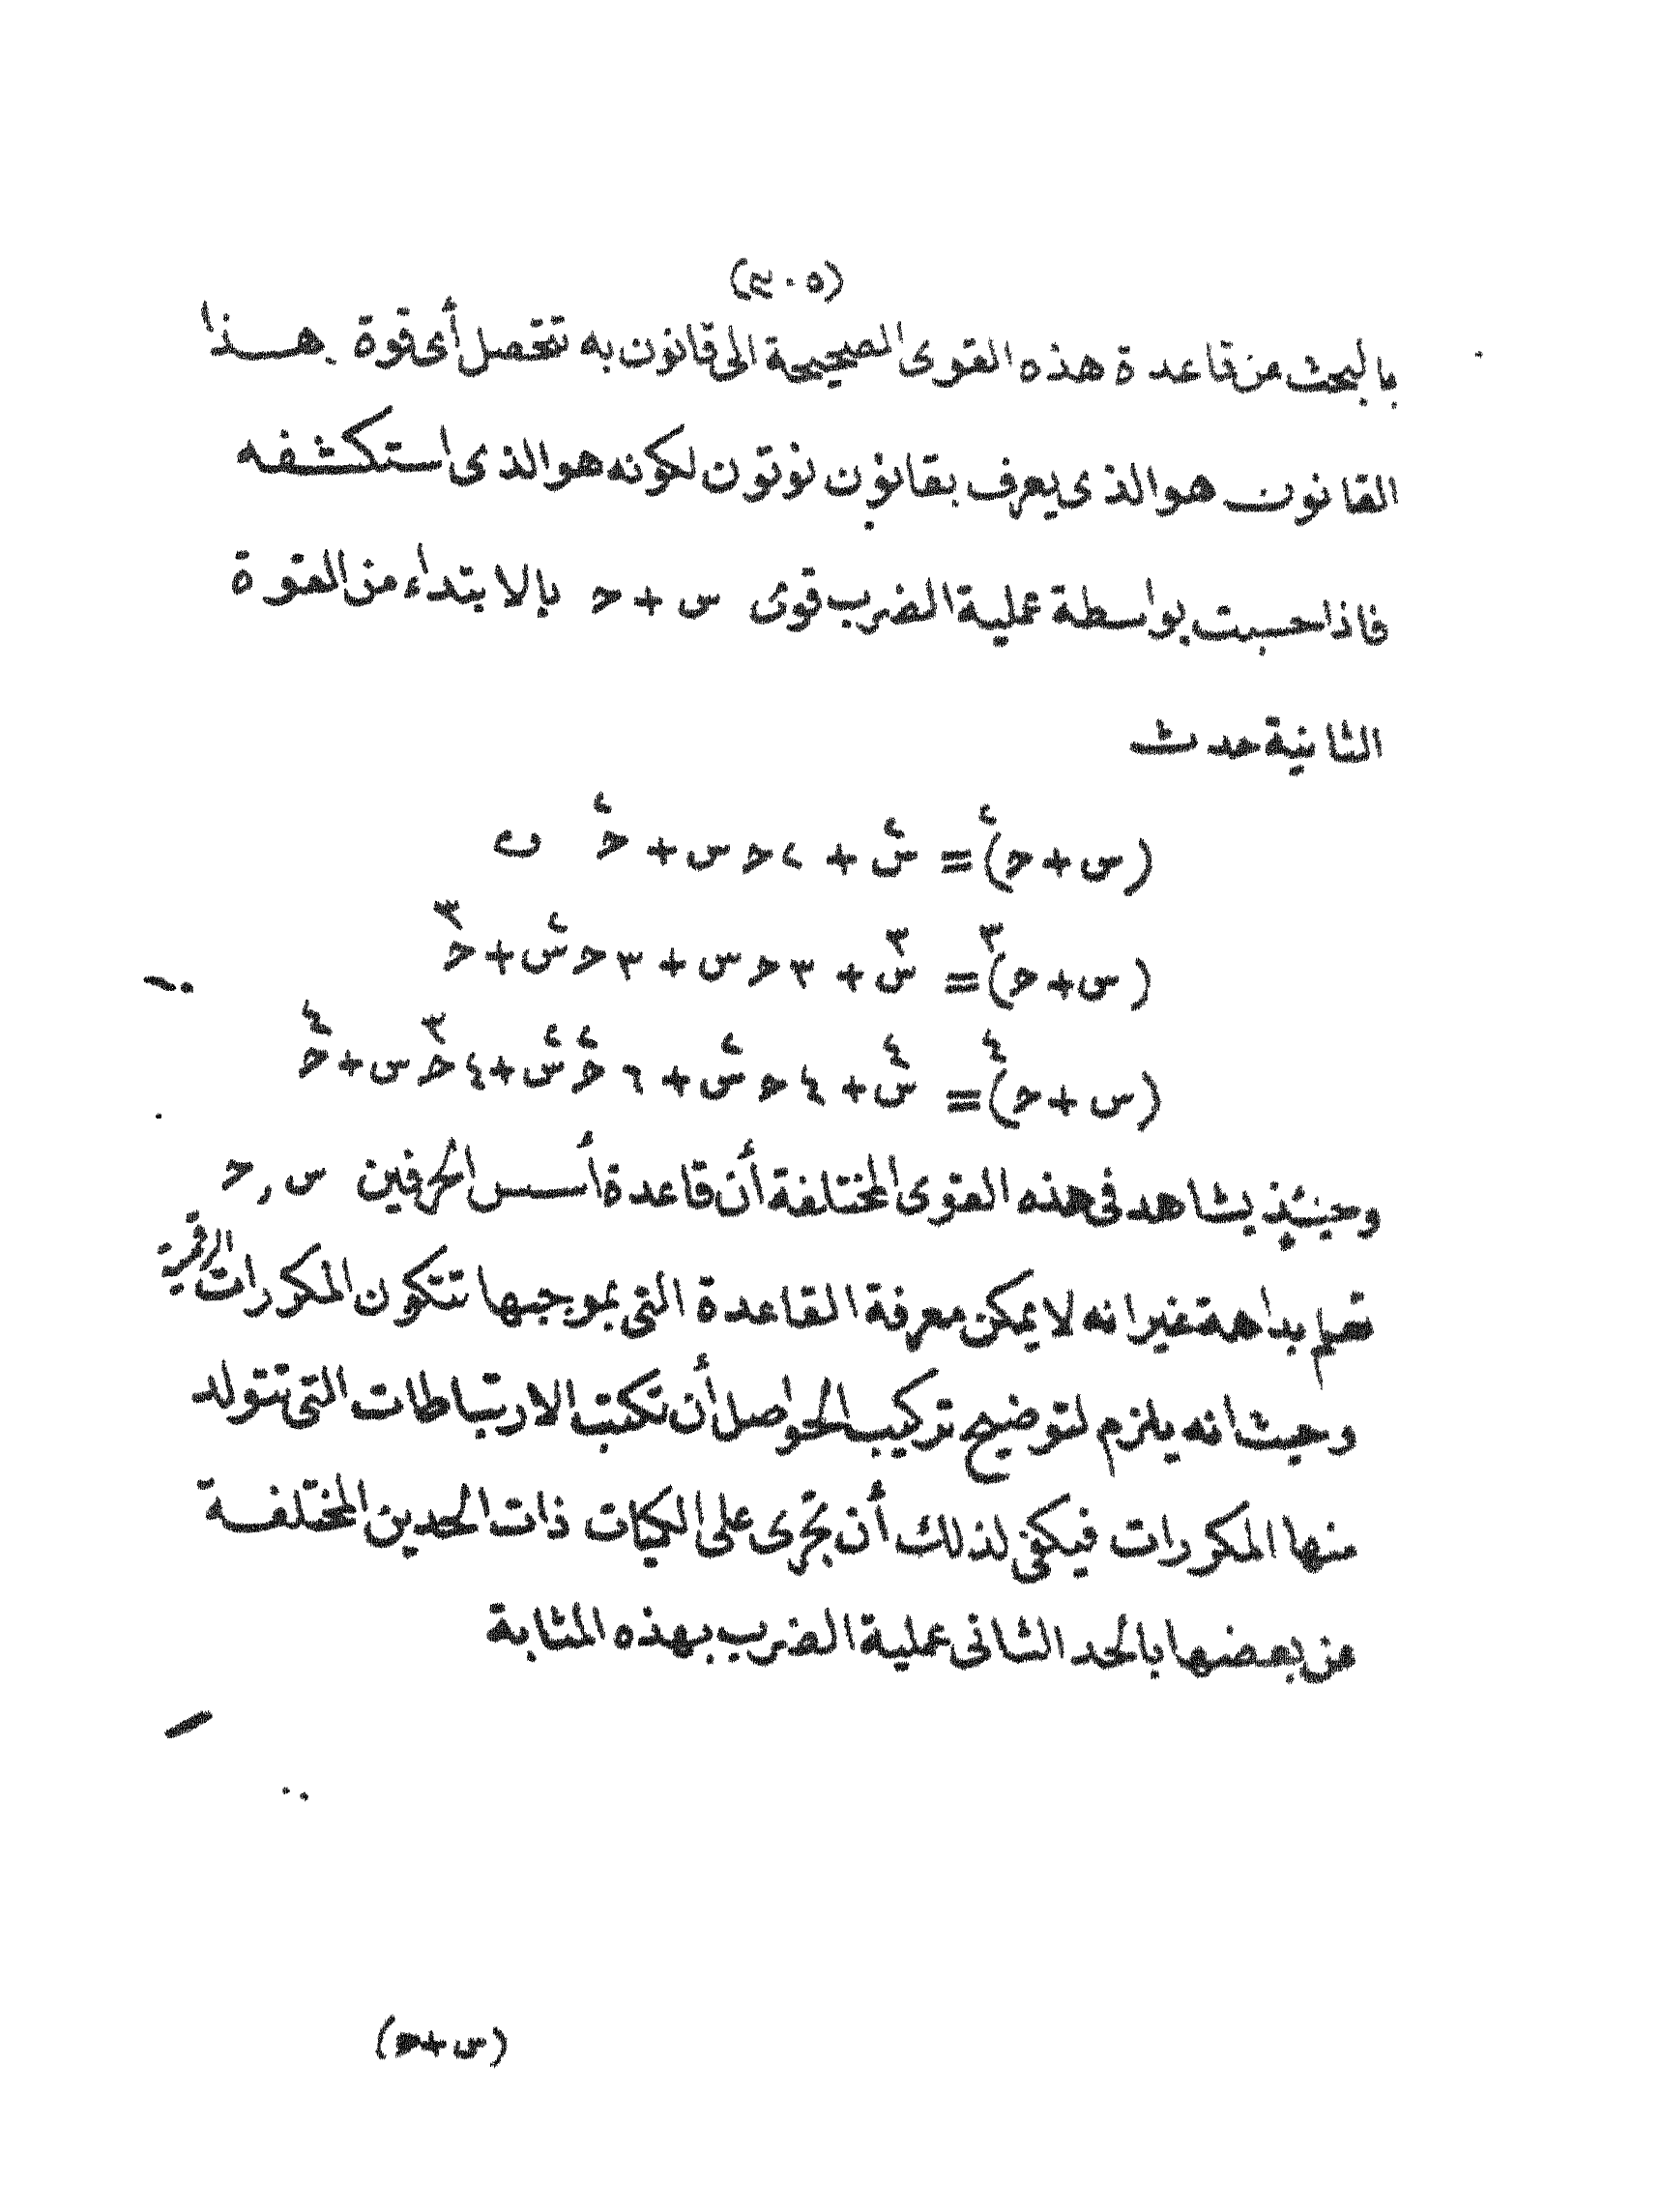 (٢٠٥)
بالبحث من قاعدة هذه القوى الصحيحة الى قانون به تتحصل أى قوة هـذا
القانون هو الذى يعرف بقانون نوتون لكونه هو الذى استكشفه
فاذا حسبت بواسطة عملية الضرب قوى س + حـ بالابتداء من القوة
الثانية حدث
(س+حـ)٢ = س٢ + ٢حـ س + حـ٢ ں
(س+حـ)٣ = س٣ + ٣حـ س + ٣حـ س٢ + حـ٣
(س+حـ)٤ = س٤ + ٤حـ س٢ + ٦حـ٢ س٢ + ٤حـ٣ س + حـ٤
وحينئذ يشاهد فى هذه القوى المختلفة أن قاعدة أسس الحرفين س , حـ
تعلم بداهة غير انه لا يمكن معرفة القاعدة التى بموجبها تتكون المكررات الرقمية
وحيث انه يلزم لتوضيح تركيب الحواصل أن تكتب الارتباطات التى تتولد
منها المكررات فيكفى لذلك أن تجرى على الكميات ذات الحدين المختلفـة
عن بعضها بالحد الثانى عملية الضرب بهذه المثابة
(س+حـ)